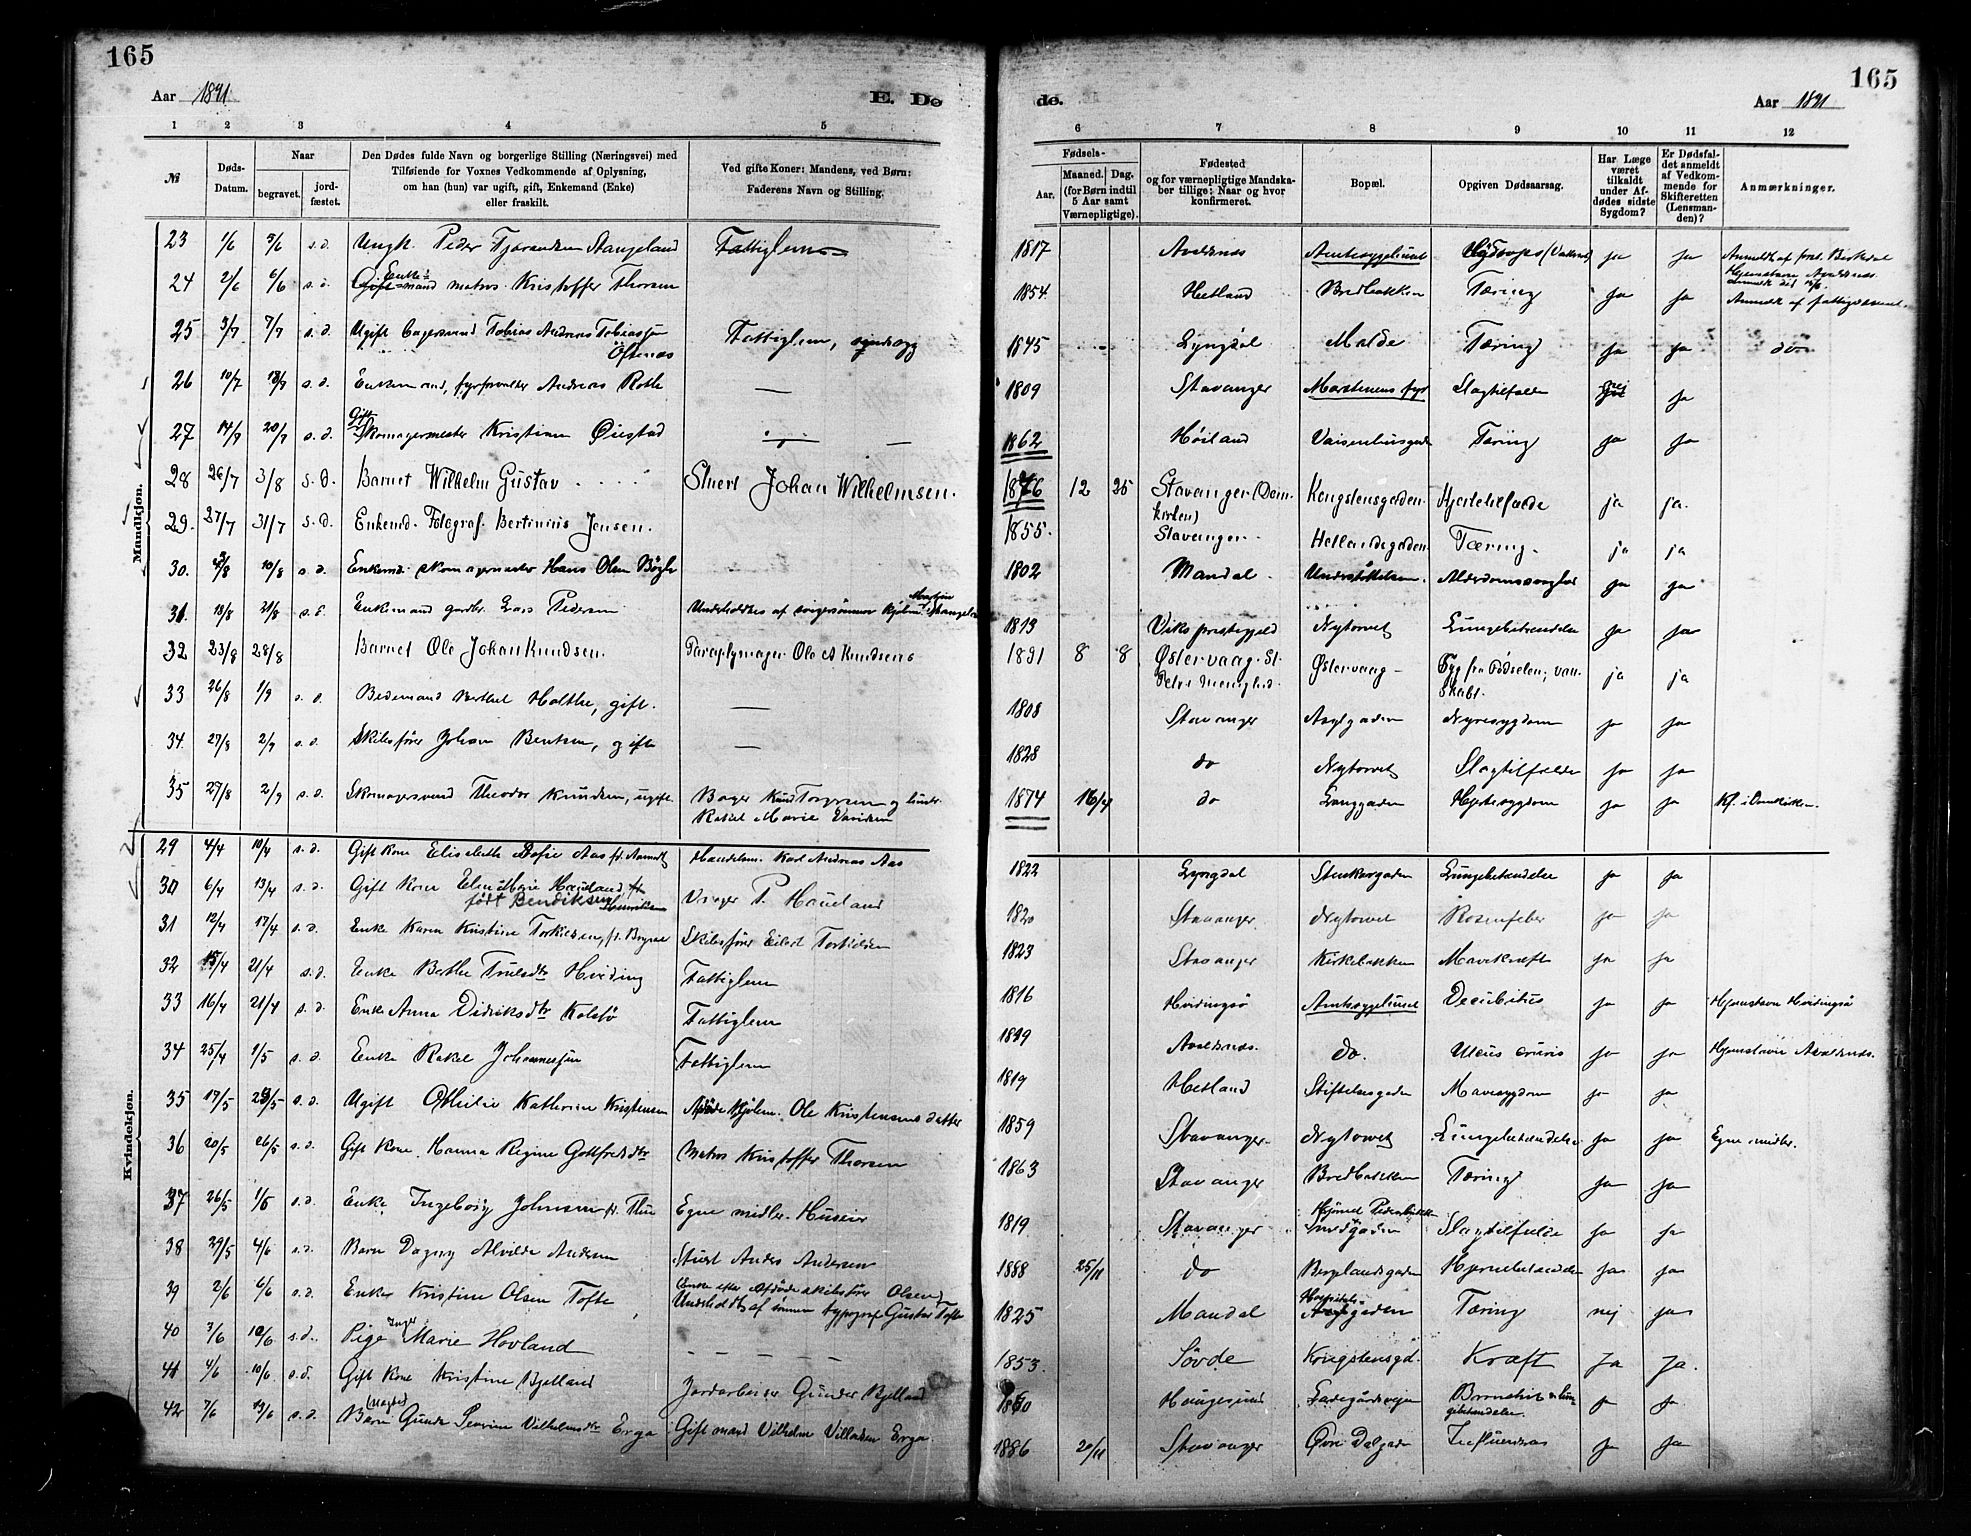 165
Aar 1891
E. Dø
1 2 3 4 5
№
Døds-Datum.
Naar
begravet.
jord-fæstet.
Den Dødes fulde Navn og borgerlige Stilling (Næringsvei) med
Tilføiende for Voxnes Vedkommende af Oplysning,
om han (hun) var ugift, gift, Enkemand (Enke)
eller fraskilt.
Ved gifte Koner: Mandens, ved Børn:
Faderens Navn og Stilling.
Mandkjøn.
23 1/6 5/6 s.d. Ungk. Peder Stangeland Fattiglem
24 2/6 6/6 s.d. Enke-mand matros Kristoffer Thorsen
25 3/7 7/7 s.d. Ugift Tobias Andreas Tobiassen Fattiglem,
Öftenæs
26 10/7 s.d. Enkemand, Andreas Rothe —
27 s.d. Gift Skomagermester Kristian Øiestad
28 26/7 3/8 s.d. Barnet Wilhelm Gustav Stuert Johan Wilhelmsen.
29. 27/7 31/7 s.d. Enkemd. Fotograf. Bertinius Jensen.
30. 10/8 s.d. Enkemd. skomagermester Hans Olsen
31. 18/8 21/8 s.d. Enkemand Lars Pedersen Underholdtes af
32 23/8 28/8 Barnet Ole Johan Knudsen. Paraplymager Ole A Knudsens
33 26/8 1/9 s.d. Bedemand Berthel Holthe, gift. —
34. 27/8 2/9 s.d. Skibsfører Johan Bentsen, gift —
35 27/8 2/9 s.d. Skomagersvend Theodor Knudsen, ugift Bager Knud Torgersen og hustr.
Rakel Marie
Kvindekjøn.
29 4/4 10/4 s.d. Gift kone Elisabeth Sofie Aas Handelsm. Karl Andreas Aas
30 6/4 13/4 s.d. Gift kone Marie Haueland P. Haueland
født Bendiksen
31 12/4 17/4 s.d. Enke Karen Kristine Torkildsen, f. Bryne Skibsfører Eilert Torkildsen
32 15/4 21/4 s.d. Enke Berthe Hviding Fattiglem
33 16/4 21/4 s.d. Enke Anna Didriksdtr Kolstø Fattiglem
34 25/4 1/5 s.d. Enke Rakel Johannessen Fattiglem
35 17/5 23/5 s.d. Ugift Othilie Kathrine Kristensen Afdøde Ole Kristensens datter
36 20/5 26/5 s.d. Gift kone Hanna Regine Gottfredsdtr Matros Kristoffer Thorsen
37 26/5 s.d. Enke Ingeborg Johnsen f. Thu Egne midler.
38 29/5 4/6 s.d. Barn Dagny Alvilde Andersen Stuert Anders Andersen
39 2/6 6/6 s.d. Enke Kristine Olsen Tofte Enke efter Afdøde skibsfører Olsen
Underholdt af sønnen typograf Gustav Tofte
40 3/6 10/6 s.d. Pige Inger Marie Hovland — — — —
41 4/6 10/6 s.d. Gift kone Kristine Bjelland Jordarbeider Gunder Bjelland
42 7/6 13/6 s.d. Barn Severine Vilhelmsdtr Erga Gift mand Vilhelm Villadsen Erga
165
de.
Aar 1891
6 7 8 9 10 11 12
Fødsels-
Aar.
Maaned. Dag.
(for Børn indtil
5 Aar samt
Værnepligtige).
Fødested
og for værnepligtige Mandska-
ber tillige: Naar og hvor
konfirmeret.
Bopæl.
Opgiven Dødsaarsag.
Har Læge
været
tilkaldt
under Af-
dødes sidste
Sygdom?
Er Dødsfal-
det anmeldt
af Vedkom-
mende for
Skifteretten
(Lensman-
den)?
Anmærkninger.
1817 Avaldsnes Amtssygehuset ja ja
Hjemstavn Avaldsnes
1854 Hetland Bredbakken Tæring ja ja Anmeldt af fattigvæsenet
1845 Lyngdal Malde Tæring ja ja do
1809 Stavanger Marstenens fyr Slagtilfælde nei ja
1862 Høiland Vaisenhusgaden Tæring ja ja
1876 12 25 Stavanger (Dom-
kirken) Kongstensgaden Hjertetilfælde ja ja.
1855. Stavanger. Hetlandsgaden Tæring. ja ja
1802 Mandal. Understøttelsen. Alderdomssvaghed ja ja
1813 Viks prestegjeld Nytorvet Lungebetændelse ja ja
1891 8 8 Østervaag. St.
Petri Menighed. Østervaag Syg fra Fødselen; van-
skabt. ja ja
1808 Stavanger Asylgaden Nyresygdom ja ja
1828 do Nytorvet Slagtilfælde ja ja
1874 16/4 do Langgaden Hjertesygdom ja ja Kf. i Domkirken
1822 Lyngdal Stenkargaden Lungebetændelse ja ja
1820 Stavanger Nytorvet Rosenfeber ja ja
1823 Stavanger Kirkebakken Mavekræft ja ja
1816 Hvidingsø Amtssygehuset Decubitus ja ja Hjemstavn Hvidingsø
Avaldsnes do. Ulcus cruris ja ja Hjemstavn Avaldsnes.
1819 Hetland Stiftelsesgaden Mavesygdom ja ja
1859 Stavanger Nytorvet Lungebetændelse ja ja Egne midler.
1863 Stavanger Bredbakken Tæring ja ja
1819 Stavanger Hjørnet Pedersbakken
Smedgaden Slagtilfælde ja ja
1888 25/11 do Bergelandsgaden Hjernebetændelse ja ja
1825 Mandal Hospitalsgaden Tæring nej ja
1853. Søvde Kongstensgd. Kræft Ja Ja.
Haugesund Ladegårdsveien Bronchit og lun-
gebetændelse. ja ja
1886 20/11 Stavanger Øvre Dalgade Influenzas ja ja